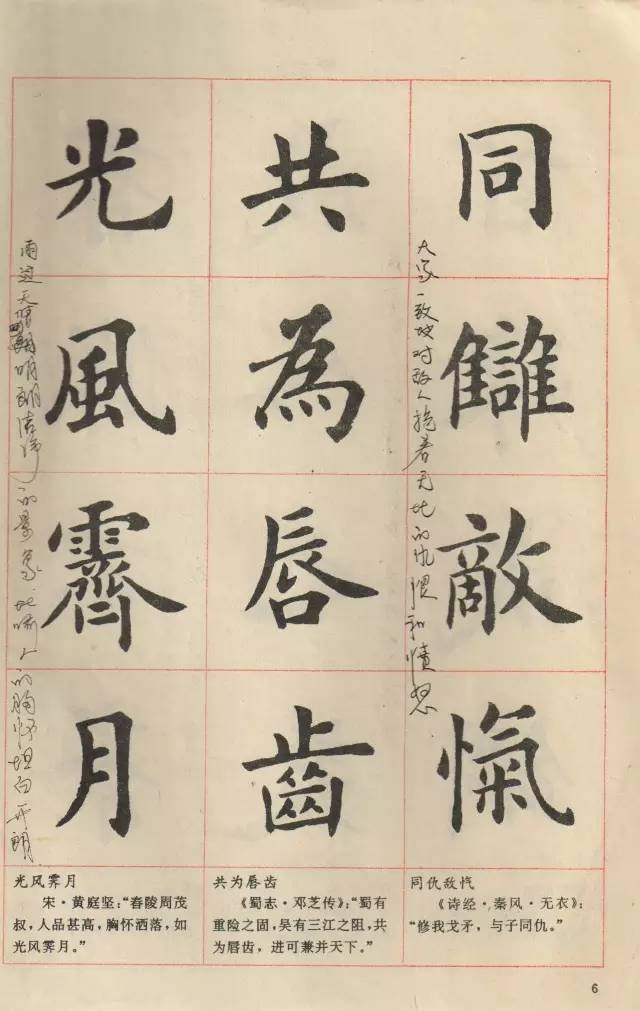 同讎敵愾
大家一致地对敌人抱着无比的仇恨和愤怒
共為唇齒
光風霽月
雨过天晴明朗洁净的景象比喻人的胸怀坦白开朗
同仇敌忾
《诗经·秦风·无衣》：
“修我戈矛，与子同仇。”
共为唇齿
《蜀志·邓芝传》：“蜀有
重险之固，吴有三江之阻，共
为唇齿，进可兼并天下。”
光风霁月
宋·黄庭坚：“舂陵周茂
叔，人品甚高，胸怀洒落，如
光风霁月。”
6